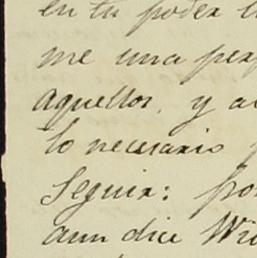 en tu poder
me una
aquellos, y
lo necesario
seguir: por
aun dice